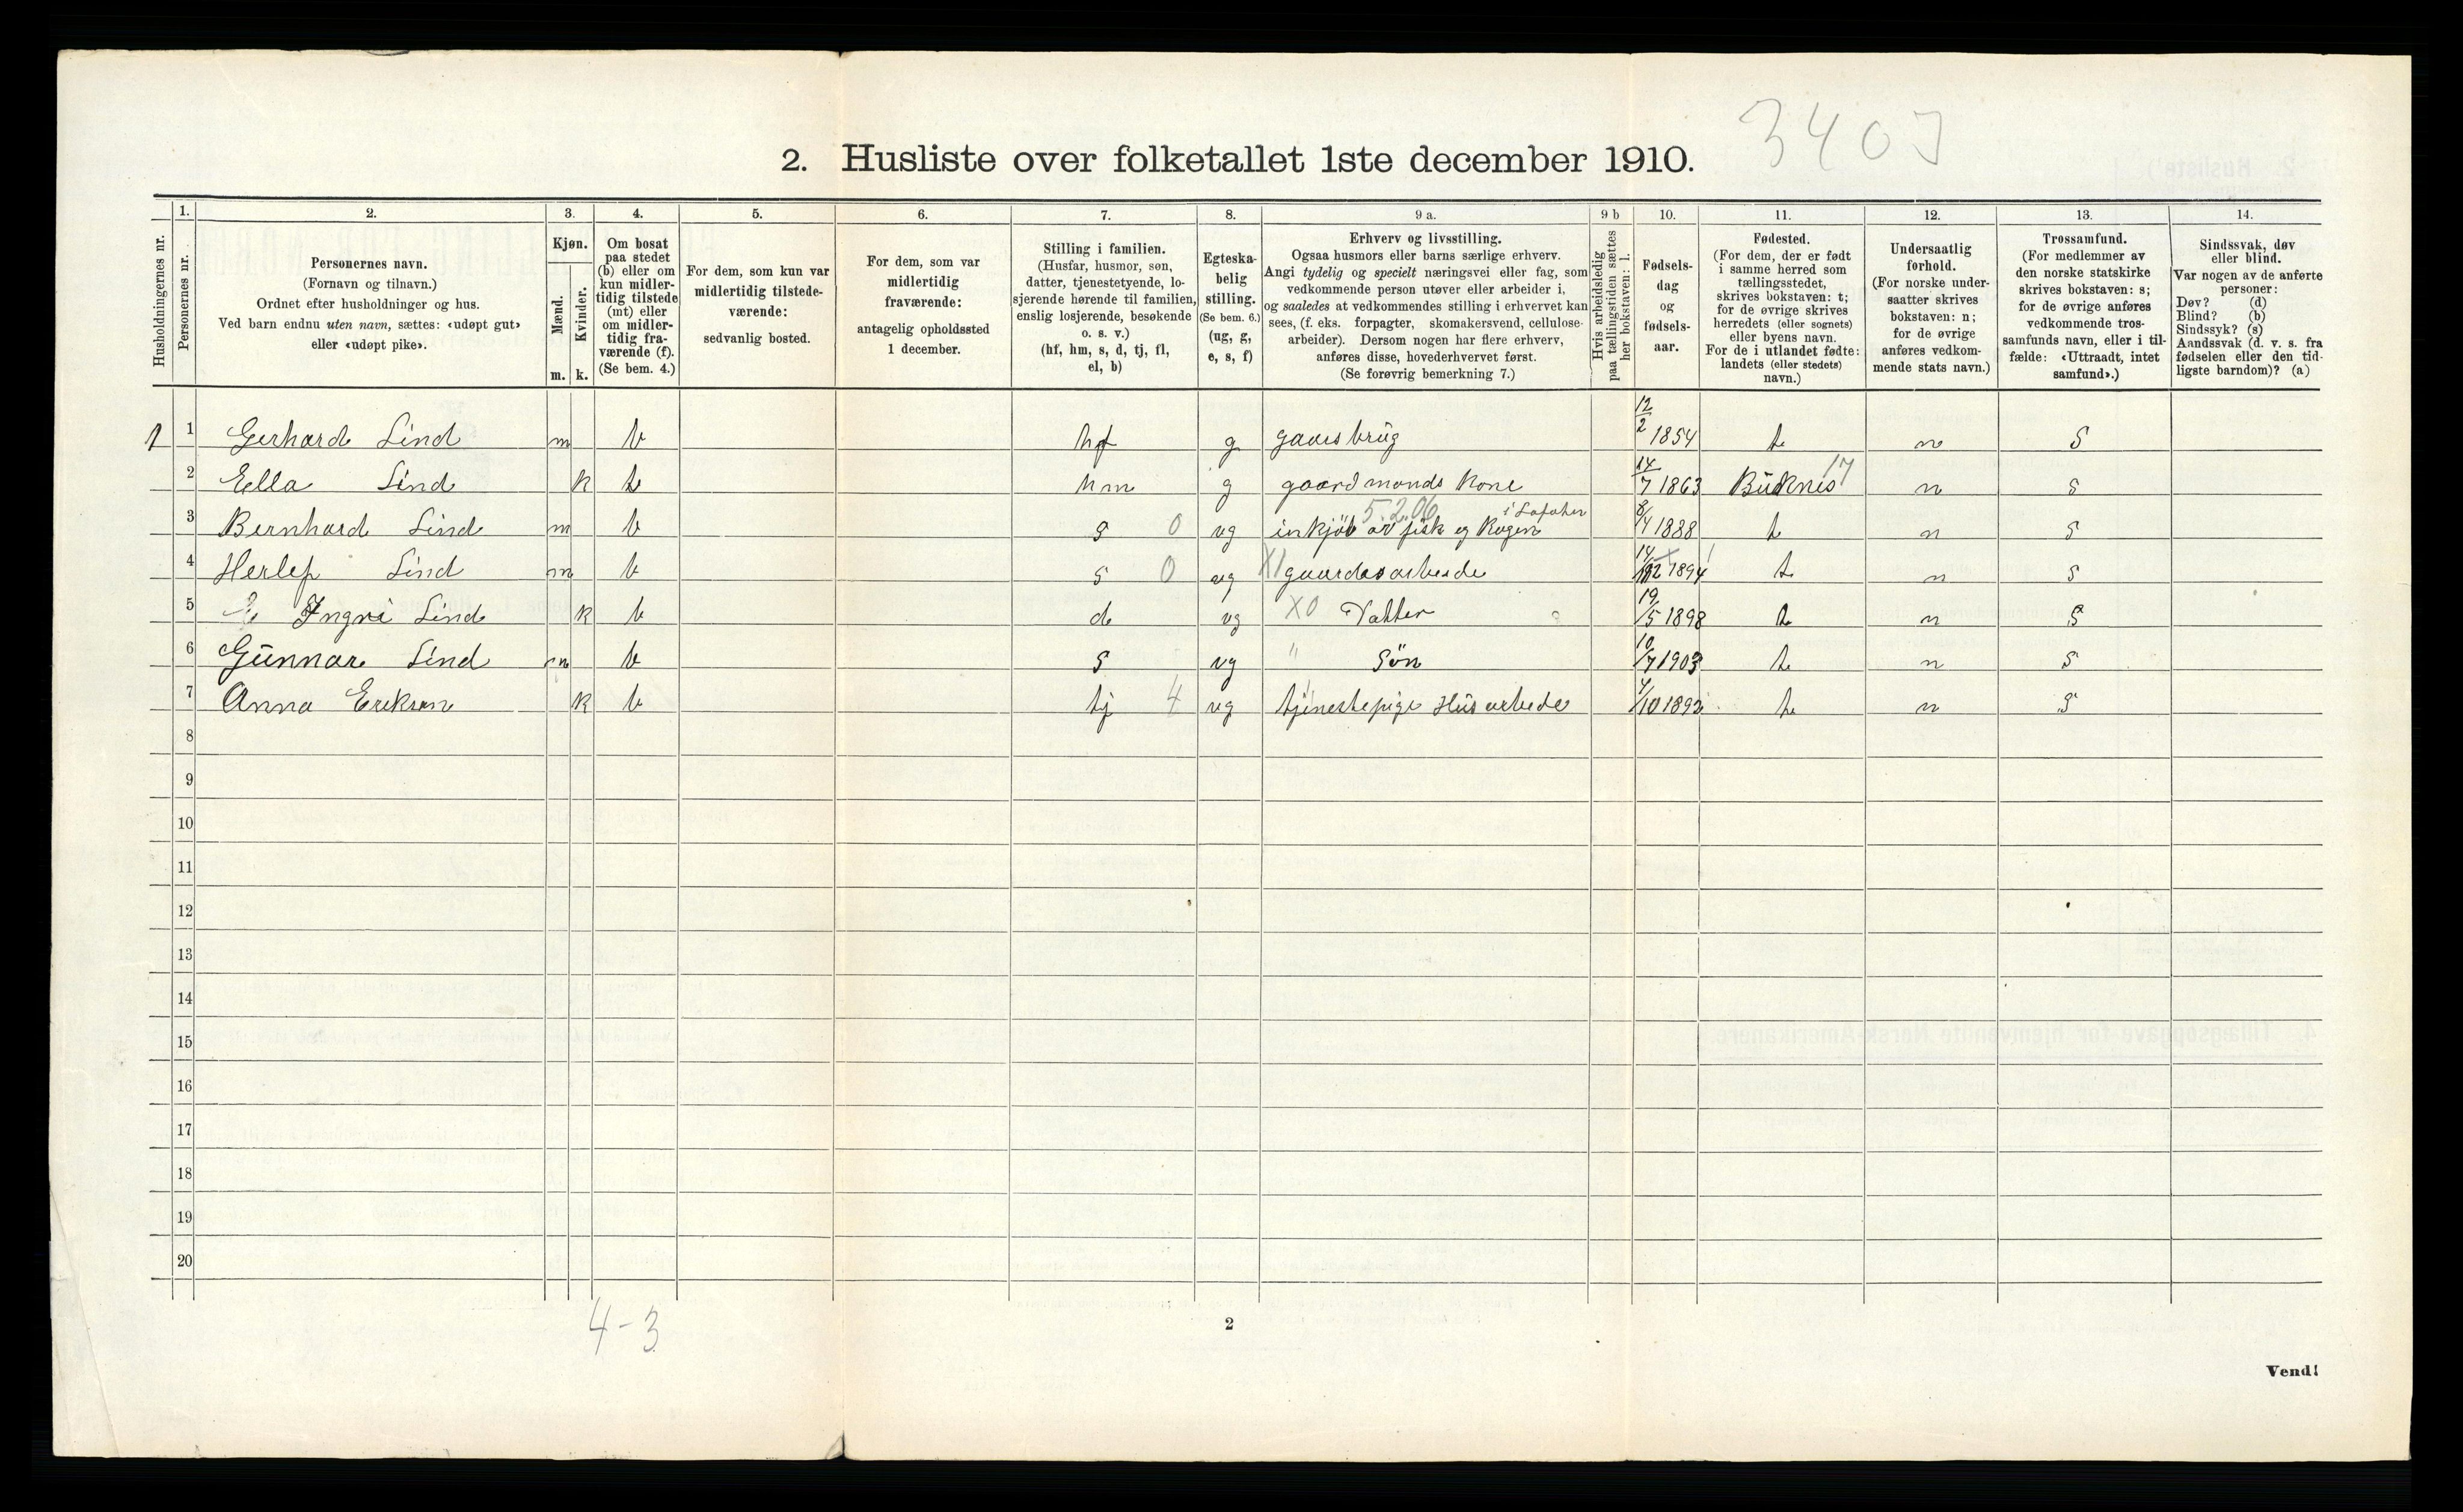 3403
2. Husliste over folketallet 1ste december 1910.
Husholdningernes nr.
1. Personernes nr.
2. Personernes navn.
(Fornavn og tilnavn.)
Ordnet efter husholdninger og hus.
Ved barn endnu uten navn, sættes: «udøpt gut»
eller «udøpt pike».
3. Kjøn.
Mænd. m.
Kvinder. k.
4. Om bosat
paa stedet
(b) eller om
kun midler-
tidig tilstede
(mt) eller
om midler-
tidig fra-
værende (f).
(Se bem. 4.)
5. For dem, som kun var
midlertidig tilstede-
værende:
sedvanlig bosted.
6. For dem, som var
midlertidig
fraværende:
antagelig opholdssted
1 december.
7. Stilling i familien.
(Husfar, husmor, søn,
datter, tjenestetyende, lo-
sjerende hørende til familien,
enslig losjerende, besøkende
o. s. v.)
(hf, hm, s, d, tj, fl,
el, b)
8. Egteska-
belig
stilling.
(Se bem. 6.)
(ug, g,
e, s, f)
9 a. Erhverv og livsstilling.
Ogsaa husmors eller barns særlige erhverv.
Angi tydelig og specielt næringsvei eller fag, som
vedkommende person utøver eller arbeider i,
og saaledes at vedkommendes stilling i erhvervet kan
sees, (f. eks. forpagter, skomakersvend, cellulose-
arbeider). Dersom nogen har flere erhverv,
anføres disse, hovederhvervet først.
(Se forøvrig bemerkning 7.)
9 b Hvis arbeidsledig
paa tællingstiden sættes
her bokstaven: l.
10. Fødsels-
dag
og
fødsels-
aar.
11. Fødested.
(For dem, der er født
i samme herred som
tællingsstedet,
skrives bokstaven: t;
for de øvrige skrives
herredets (eller sognets)
eller byens navn.
For de i utlandet fødte:
landets (eller stedets)
navn.)
12. Undersaatlig
forhold.
(For norske under-
saatter skrives
bokstaven: n;
for de øvrige
anføres vedkom-
mende stats navn.)
13. Trossamfund.
(For medlemmer av
den norske statskirke
skrives bokstaven: s;
for de øvrige anføres
vedkommende tros-
samfunds navn, eller i til-
fælde: «Uttraadt, intet
samfund».)
14. Sindssvak, døv
eller blind.
Var nogen av de anførte
personer:
Døv? (d)
Blind? (b)
Sindssyk? (s)
Aandssvak (d. v. s. fra
fødselen eller den tid-
ligste barndom)? (a)
1 1 Gerhard Lind m b hf g gaarsbrug 12/2 1854 t n S
2 Ella Lind k b hm g gaardmands Kone 14/7 1863 Buknes 17 n s
3 Bernhard Lind m b s 0 ug inkjöb av fisk og Rogen i Lofoten 5.2.06 8/4 1888 t n s
4 Herlef Lind m b s 0 ug X1 gaardsarbeide 14/12 1894 t n s
5 Ingri Lind k b d ug X0 Datter 19/5 1898 t n S
6 Gunnar Lind m b s ug " Sön 10/7 1903 t n S
7 Anna Eriksen k b tj 4 ug tjenestepige Husarbede 4/10 1892 t n S
8
9
10
11
12
13
14
15
16
17
18
19
20
4-3
2
Vend!